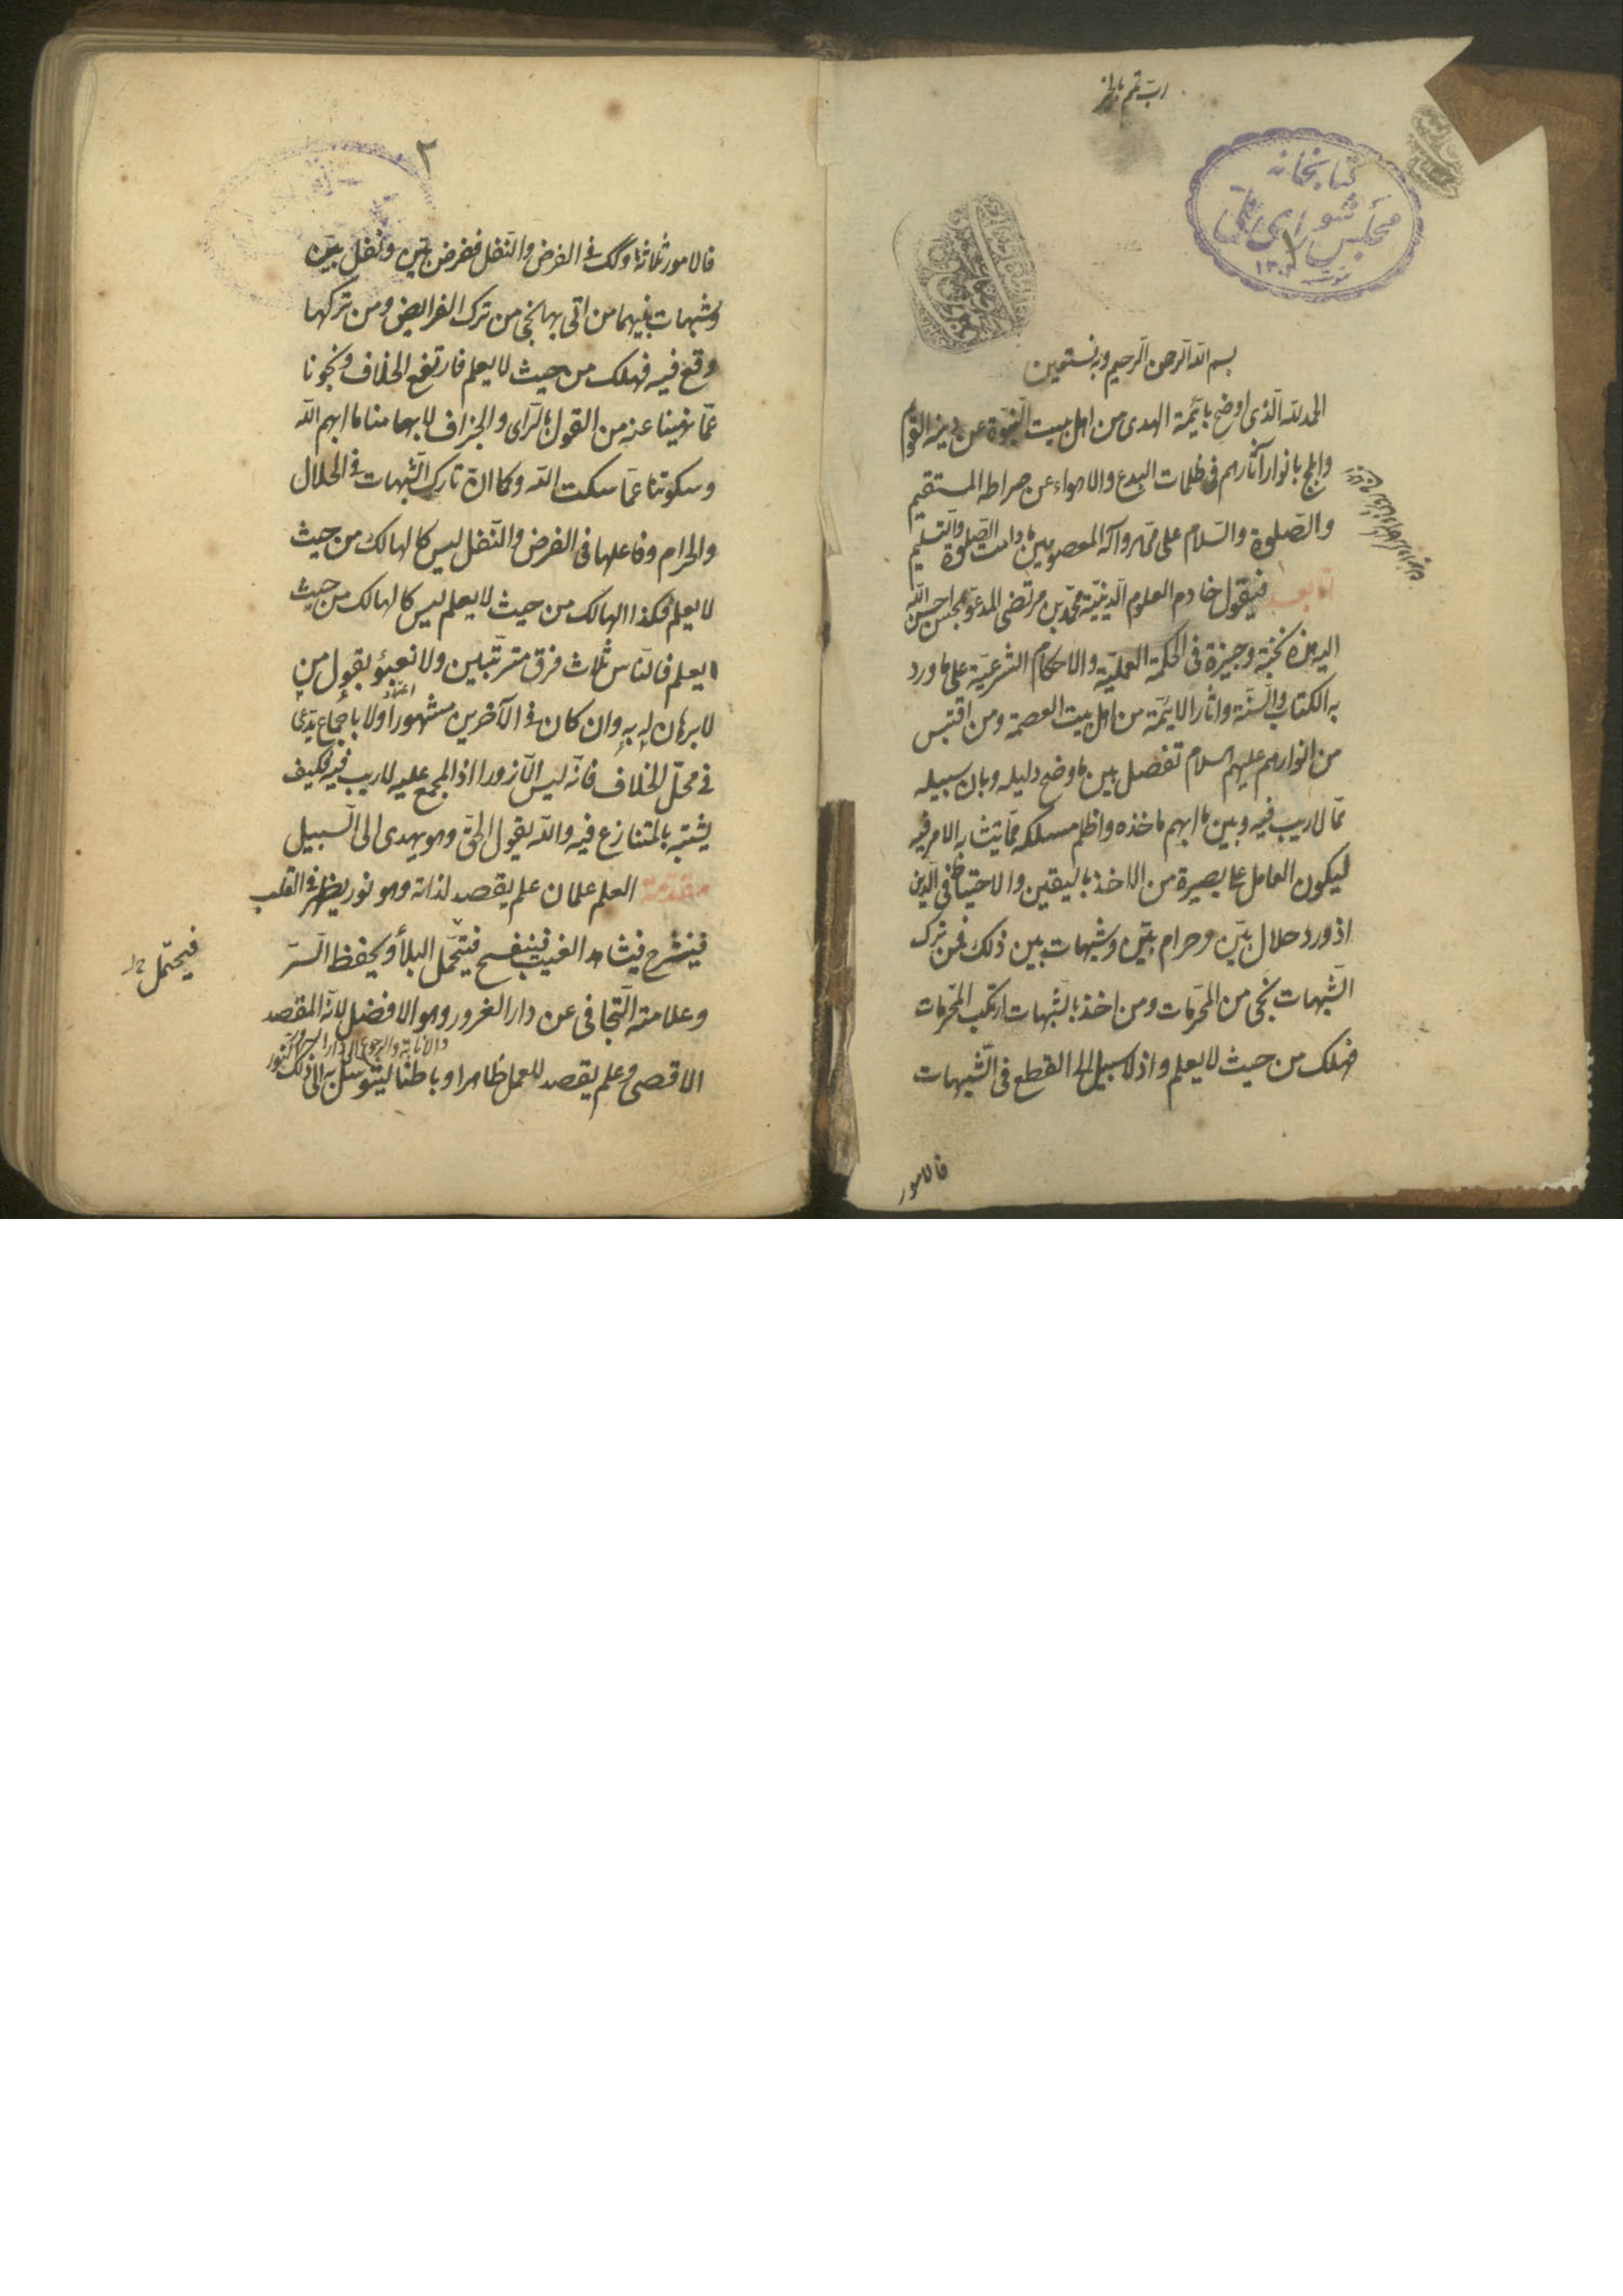 رب تمم بالخير
كتابخانه
مجلس شورای ملی
بسم الله الرحمن الرحيم وبه نستعين
الحمد لله الذى اوضح بائمة الهدى من اهل بيت النبوة عن دينه القويم
وابلج بانوار آثارهم فى ظلمات البدع والاهواء عن صراطه المستقيم
والصلوة والسلام على محمد وآله المعصومين ما دامت الصلوة والتسليم
اما بعد فيقول خادم العلوم الدينية محمد بن مرتضى المدعو بمحسن احسن الله
اليه هذه نخبة وجيزة فى الحكمة العملية والاحكام الشرعية على ما ورد
به الكتاب والسنة واثار الائمة من اهل بيت العصمة ومن اقتبس
من انوارهم عليهم السلام تفصل بين ما وضح دليله وبان سبيله
مما لا ريب فيه وبين ما ابهم ماخذه واظلم مسلكه مما يتشابه الامر فيه
ليكون العامل على بصيرة من الاخذ باليقين والاحتياط فى الدين
اذ ورد حلال بين وحرام بين وشبهات بين ذلك فمن ترك
الشبهات نجى من المحرمات ومن اخذ بالشبهات ارتكب المحرمات
فهلك من حيث لا يعلم واذ لا سبيل الى القطع فى الشبهات
فالامور
٢
فالامور ثلاثة وكك فى الفرض والنفل ففرض بين ونفل بين
وشبهات بينهما من اتى بها نجى من ترك الفرايض ومن تركها
وقع فيه فهلك من حيث لا يعلم فارتفع الخلاف ونجونا
عما نهينا عنه من القول بالراى والجزاف لابهامنا ما ابهم الله
وسكوتنا عما سكت الله وكما ان تارك الشبهات فى الحلال
والحرام وفاعلها فى الفرض والنفل ليس كالهالك من حيث
لا يعلم فكذا الهالك من حيث لا يعلم ليس كالهالك من حيث
يعلم فالناس ثلاث فرق مترتبين ولا نعبؤ بقول من
لا برهان له به وان كان فى الآخرين مشهورا ولا باجماع يدعى
فى محل الخلاف فانه ليس الا زورا اذ المجمع عليه لا ريب فيه فكيف
يشتبه بالمتنازع فيه والله يقول الحق وهو يهدى الى السبيل
مقدمة العلم علمان علم يقصد لذاته وهو نور يظهر فى القلب
فينشرح فيشاهد الغيب وينفسح فيتحمل البلاء ويحفظ السر
فيحتمل خ ل
وعلامته التجافى عن دار الغرور وهو الافضل لانه المقصد
والانابة والرجوع الى دار السرور
الاقصى وعلم يقصد للعمل ظاهرا وباطنا ليتوسل به الى ذلك النور